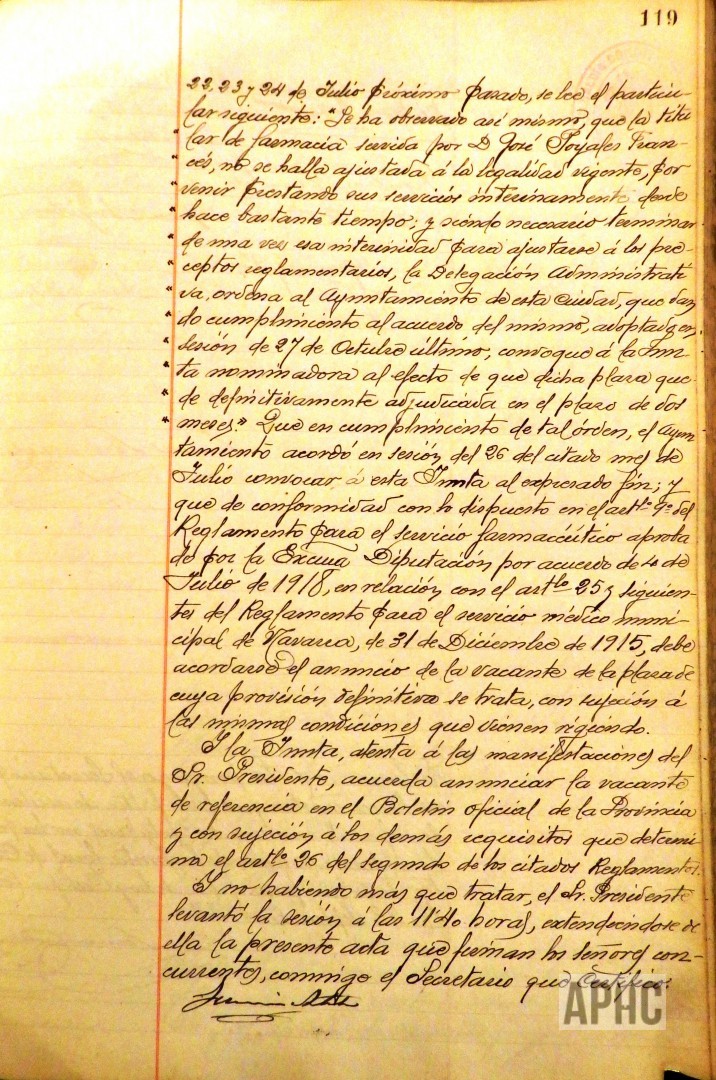 119
22, 23 y 24 de Julio próximo pasado, se lee el particu-
lar siguiente: "Se ha observado así mismo, que la titu-
" lar de farmacia servida por D José Poyales Fran-
" cés, no se halla ajustada á la legalidad vigente, por
" venir prestando sus servicios interinamente desde
" hace bastante tiempo; y siéndo necesario terminar
" de una vez esa interinidad para ajustarse á los pre-
" ceptos reglamentarios, la Delegación Administrati-
" va, ordena al Ayuntamiento de esta Ciudad, que dan-
" do cumplimiento al acuerdo del mismo, adoptado en
" sesión de 27 de Octubre último, convoque á la Jun-
" ta nominadora al efecto de que dicha plaza que-
" de definitivamente adjudicada en el plazo de dos
" meses." Que en cumplimiento de tal órden, el Ayun-
tamiento acordó en sesión del 26 del citado mes de
Julio convocar á esta Junta al expresado fin; y
que de conformidad con lo dispuesto en el artº. 9º del
Reglamento para el servicio farmacéutico aproba
do por la Excma Diputación por acuerdo de 4 de
Julio de 1918, en relación con el artlo 25 y siguien-
tes del Reglamento para el servicio médico muni-
cipal de Navarra, de 31 de Diciembre de 1915, debe
acordarse el anuncio de la vacante de la plaza de
cuya provisión definitiva se trata, con sujeción á
las mismas condiciones que vienen rigiéndo.
Y la Junta, atenta á las manifestaciones del
Sr. Presidente, acuerda anunciar la vacante
de referencia en el Boletín oficial de la Provincia
y con sujeción á los demás requisitos que determi
na el artlo 26 del segundo de los citados Reglamentos.
Y no habiendo más que tratar, el Sr. Presidente
levantó la sesión á las 11'40 horas, extendiéndose de
ella la presente acta que firman los señores con-
currentes, conmigo el Secretario que Certifico.
APHC